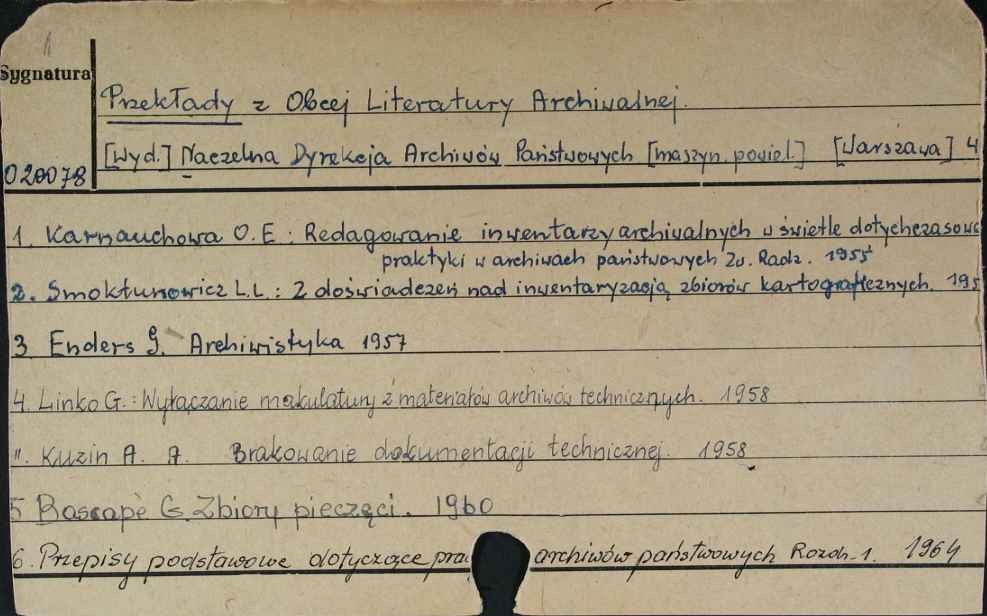 Sygnatura
Przekłady z Obcej Literatury Archiwalnej.
[Wyd.] Naczelna Dyrekcja Archiwów Państwowych [maszyn. powiel.] [Warszawa] 4
020078
1. Karnauchowa O.E.: Redagowanie inwentarzy archiwalnych w świetle dotychczasowe
praktyki w archiwach państwowych Zw. Radz. 1955
2. Smoktunowicz L.L.: Z doświadczeń nad inwentaryzacją zbiorów kartograficznych. 195
3 Enders G. Archiwistyka 1957
4. Linko G.: Wyłączanie makulatury z materiałów archiwów technicznych. 1958
". Kuzin A. A. Brakowanie dokumentacji technicznej. 1958
5 Bascapè G. Zbiory pieczęci. 1960
6. Przepisy podstawowe dotyczące prac archiwów państwowych Rozdz. 1. 1964